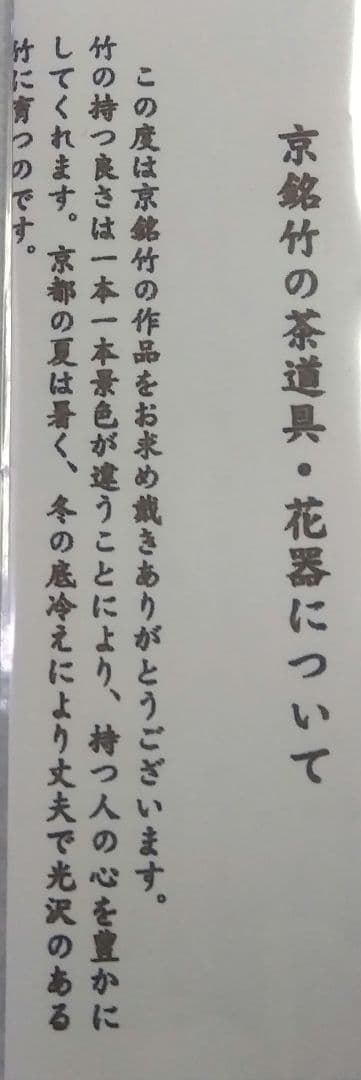 京銘竹の茶道具・花器について
この度は京銘竹の作品をお求め戴きありがとうございます。
竹の持つ良さは一本一本景色が違うことにより、持つ人の心を豊かに
してくれます。京都の夏は暑く、冬の底冷えにより丈夫で光沢のある
竹に育つのです。